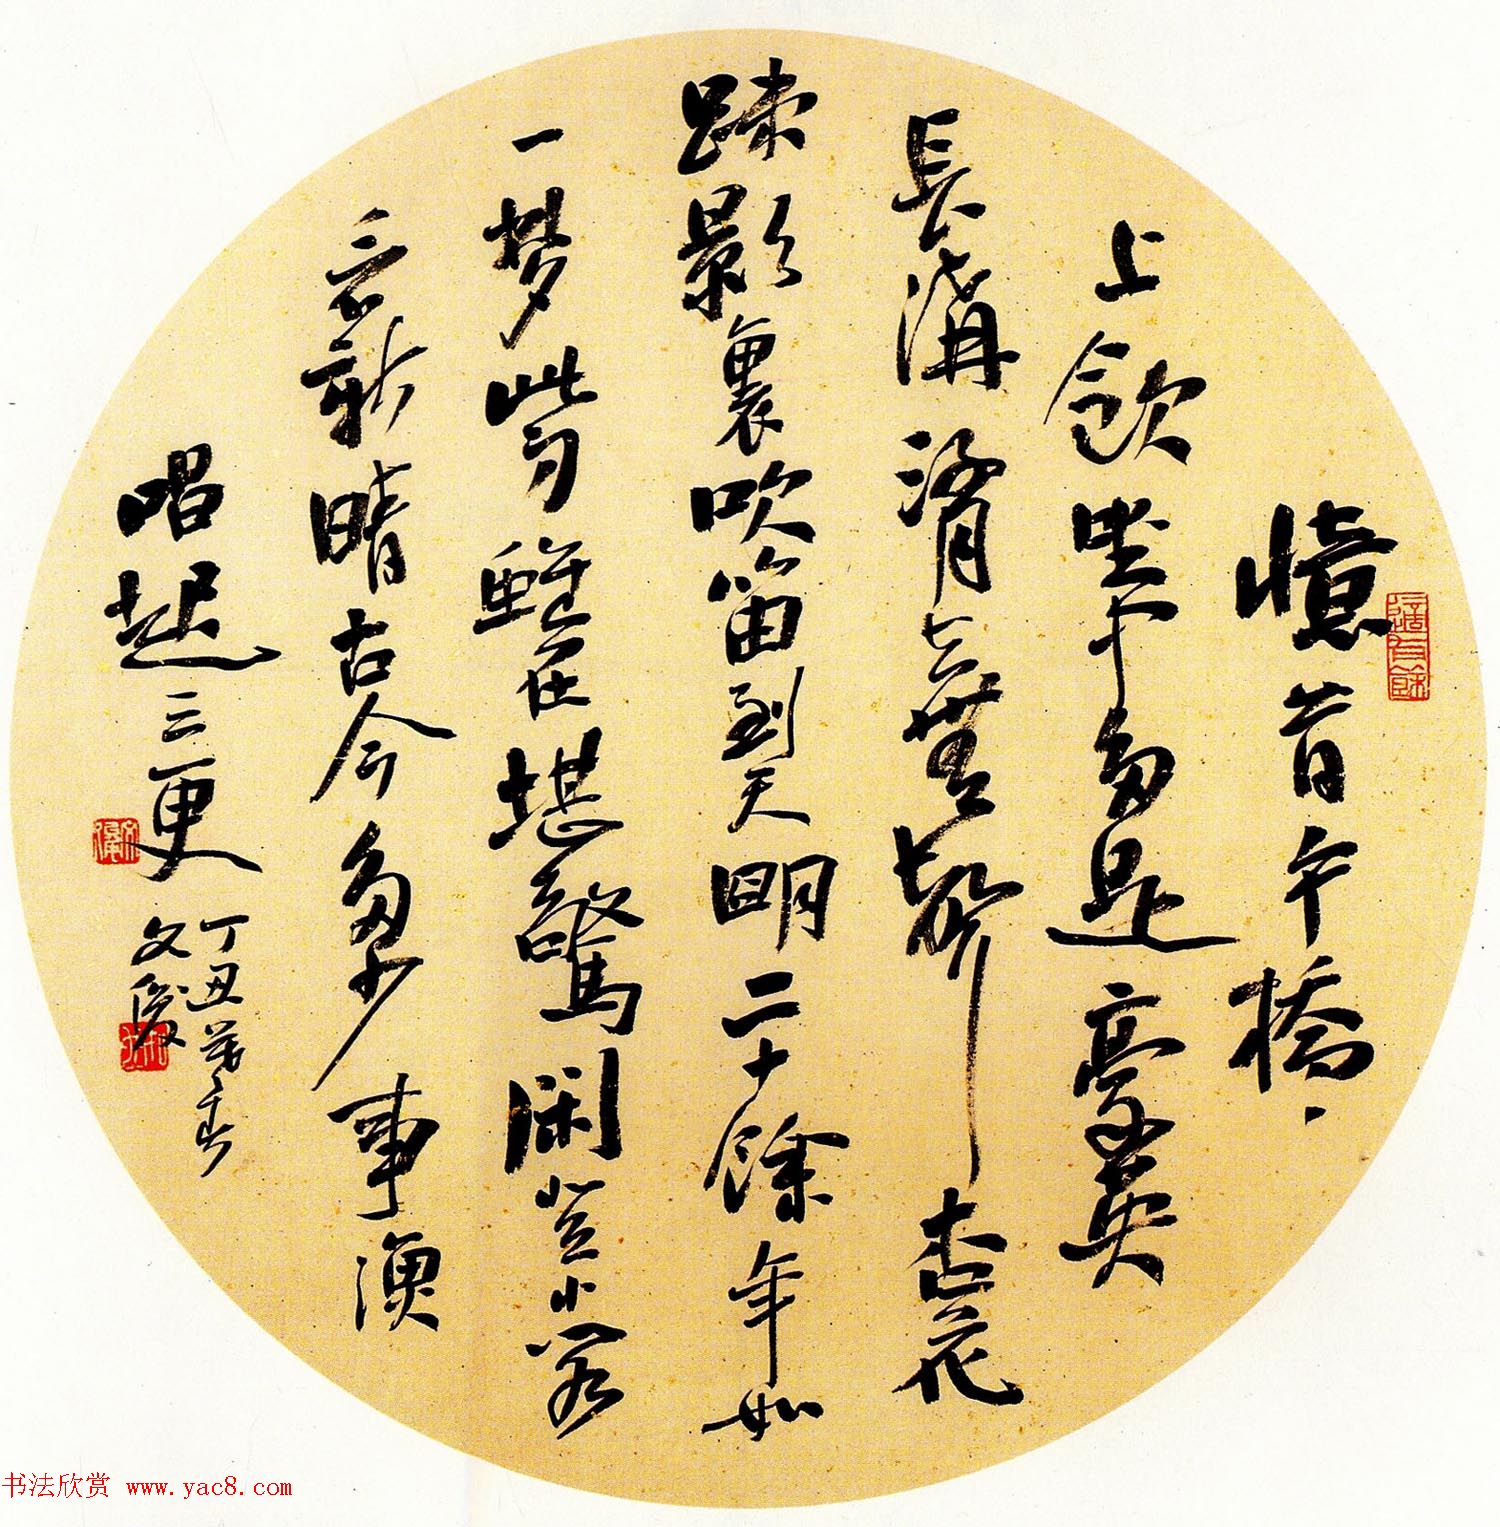 憶昔午橋、
上飲坐中多是豪英
長溝流月去無聲杏花
踈影裏吹笛到天明二十餘年如
一夢此身雖在堪驚閑登小閣
看新晴古今多少事漁
唱起三更
丁丑莫春
文俊
书法欣赏 www.yac8.com